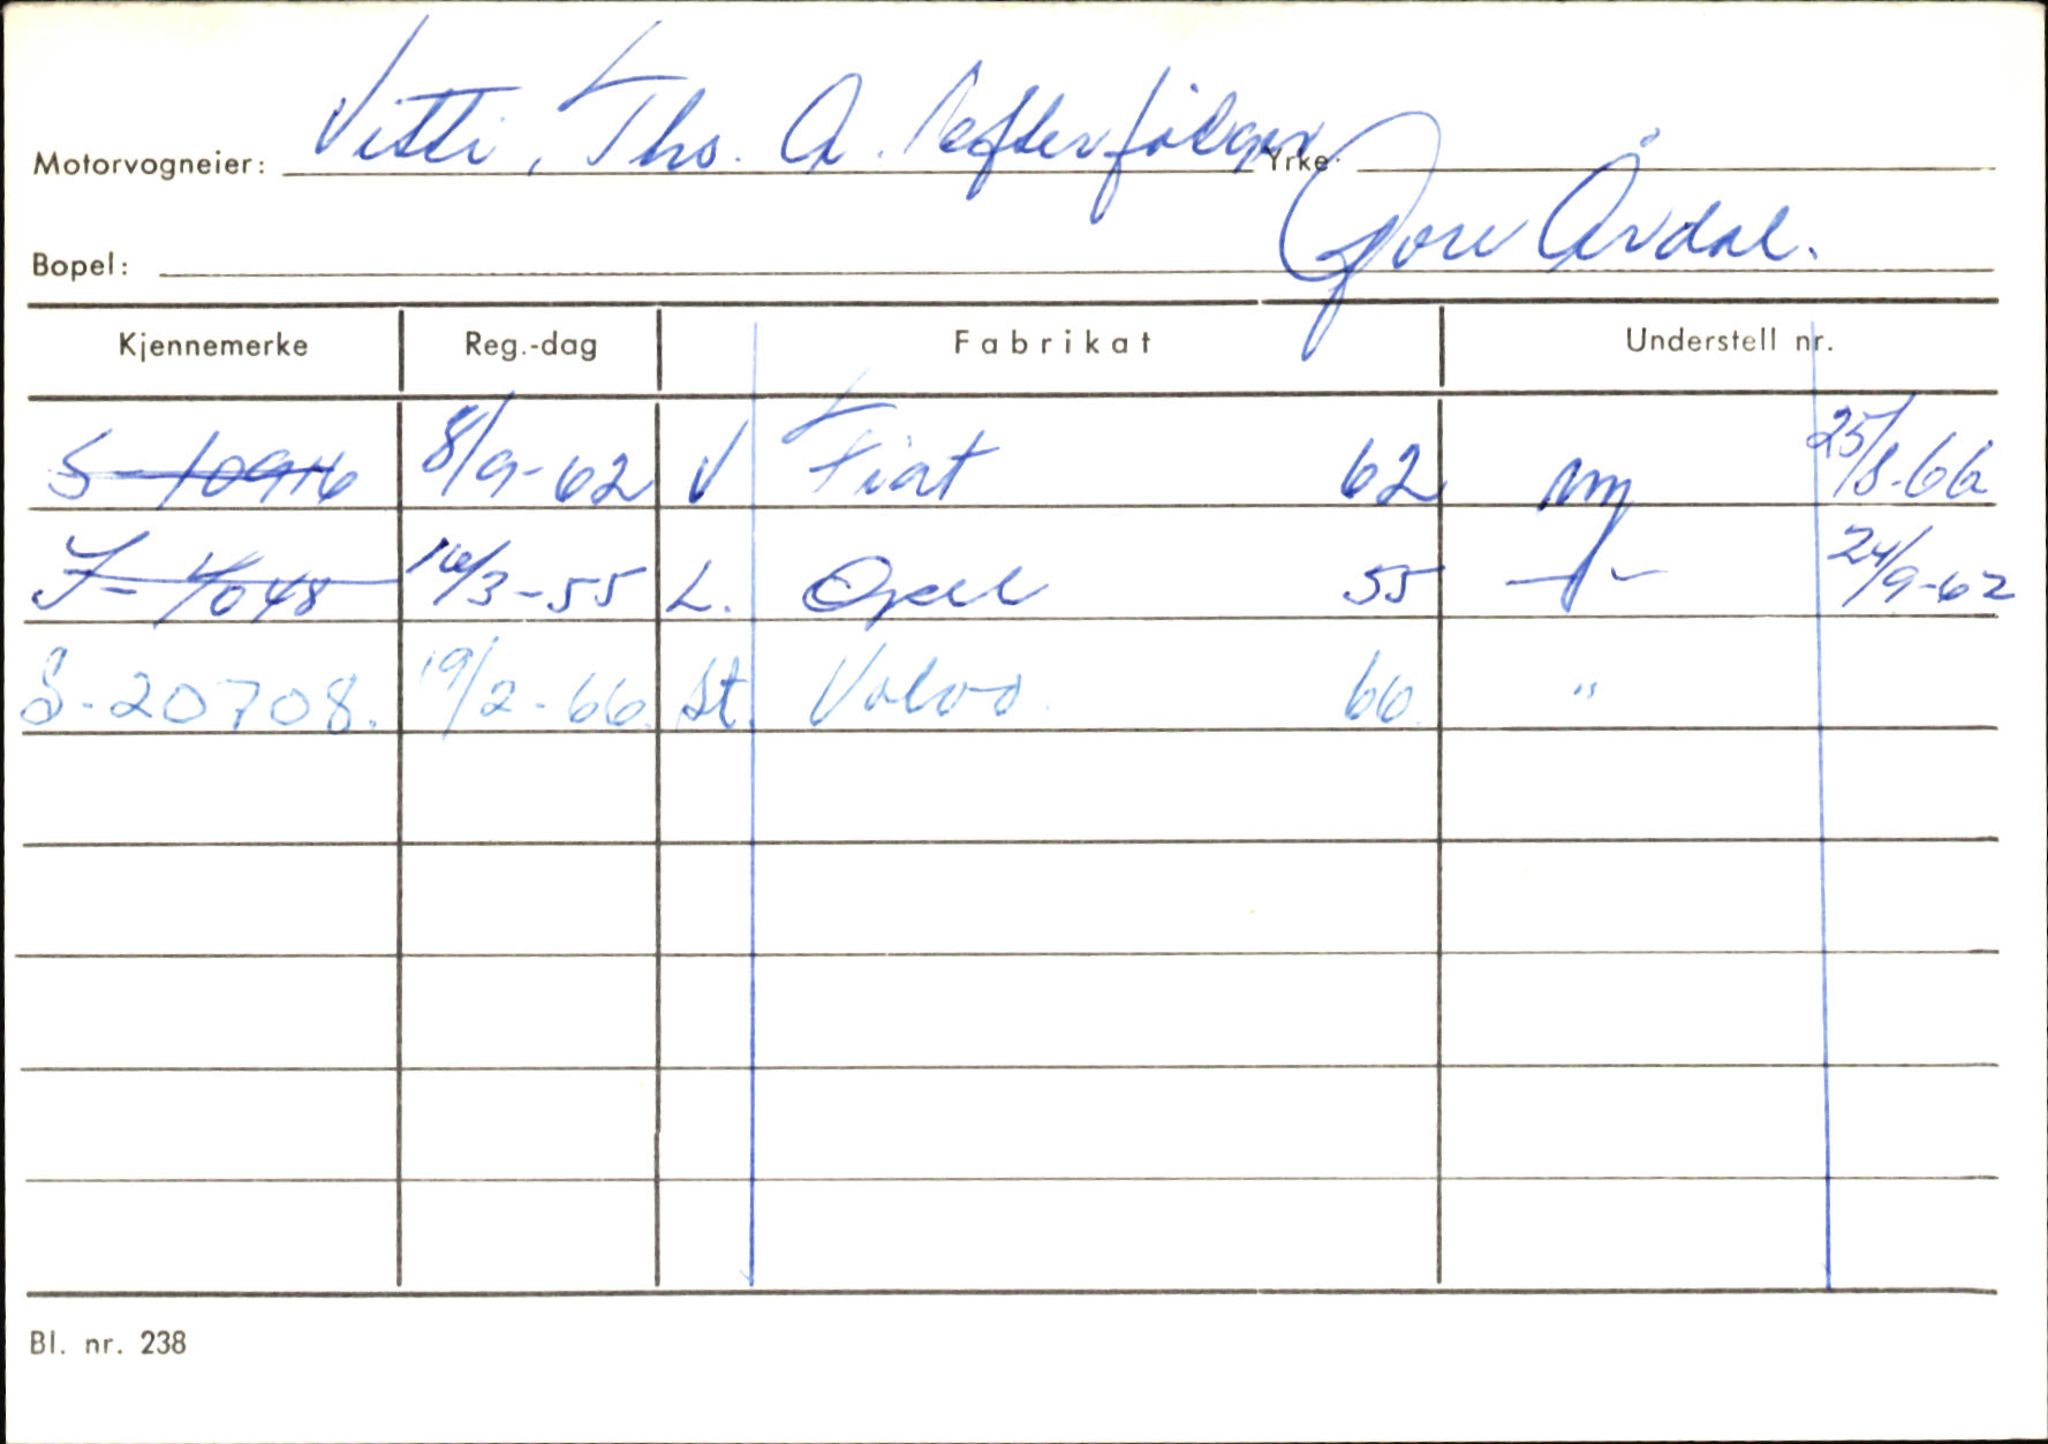 Motorvogneier: Vitti, Ths. A. Eefterfølger Yrke:
Bopel: Øvre Årdal.
Kjennemerke Reg.-dag Fabrikat Understell nr.
S-10946 8/9-62 V Fiat 62 ny 25/8-66
S-4048 16/3-55 L. Opel 55 -"- 24/9-62
S-20708. 19/2-66. St. Volvo. 66. "
Bl. nr. 238